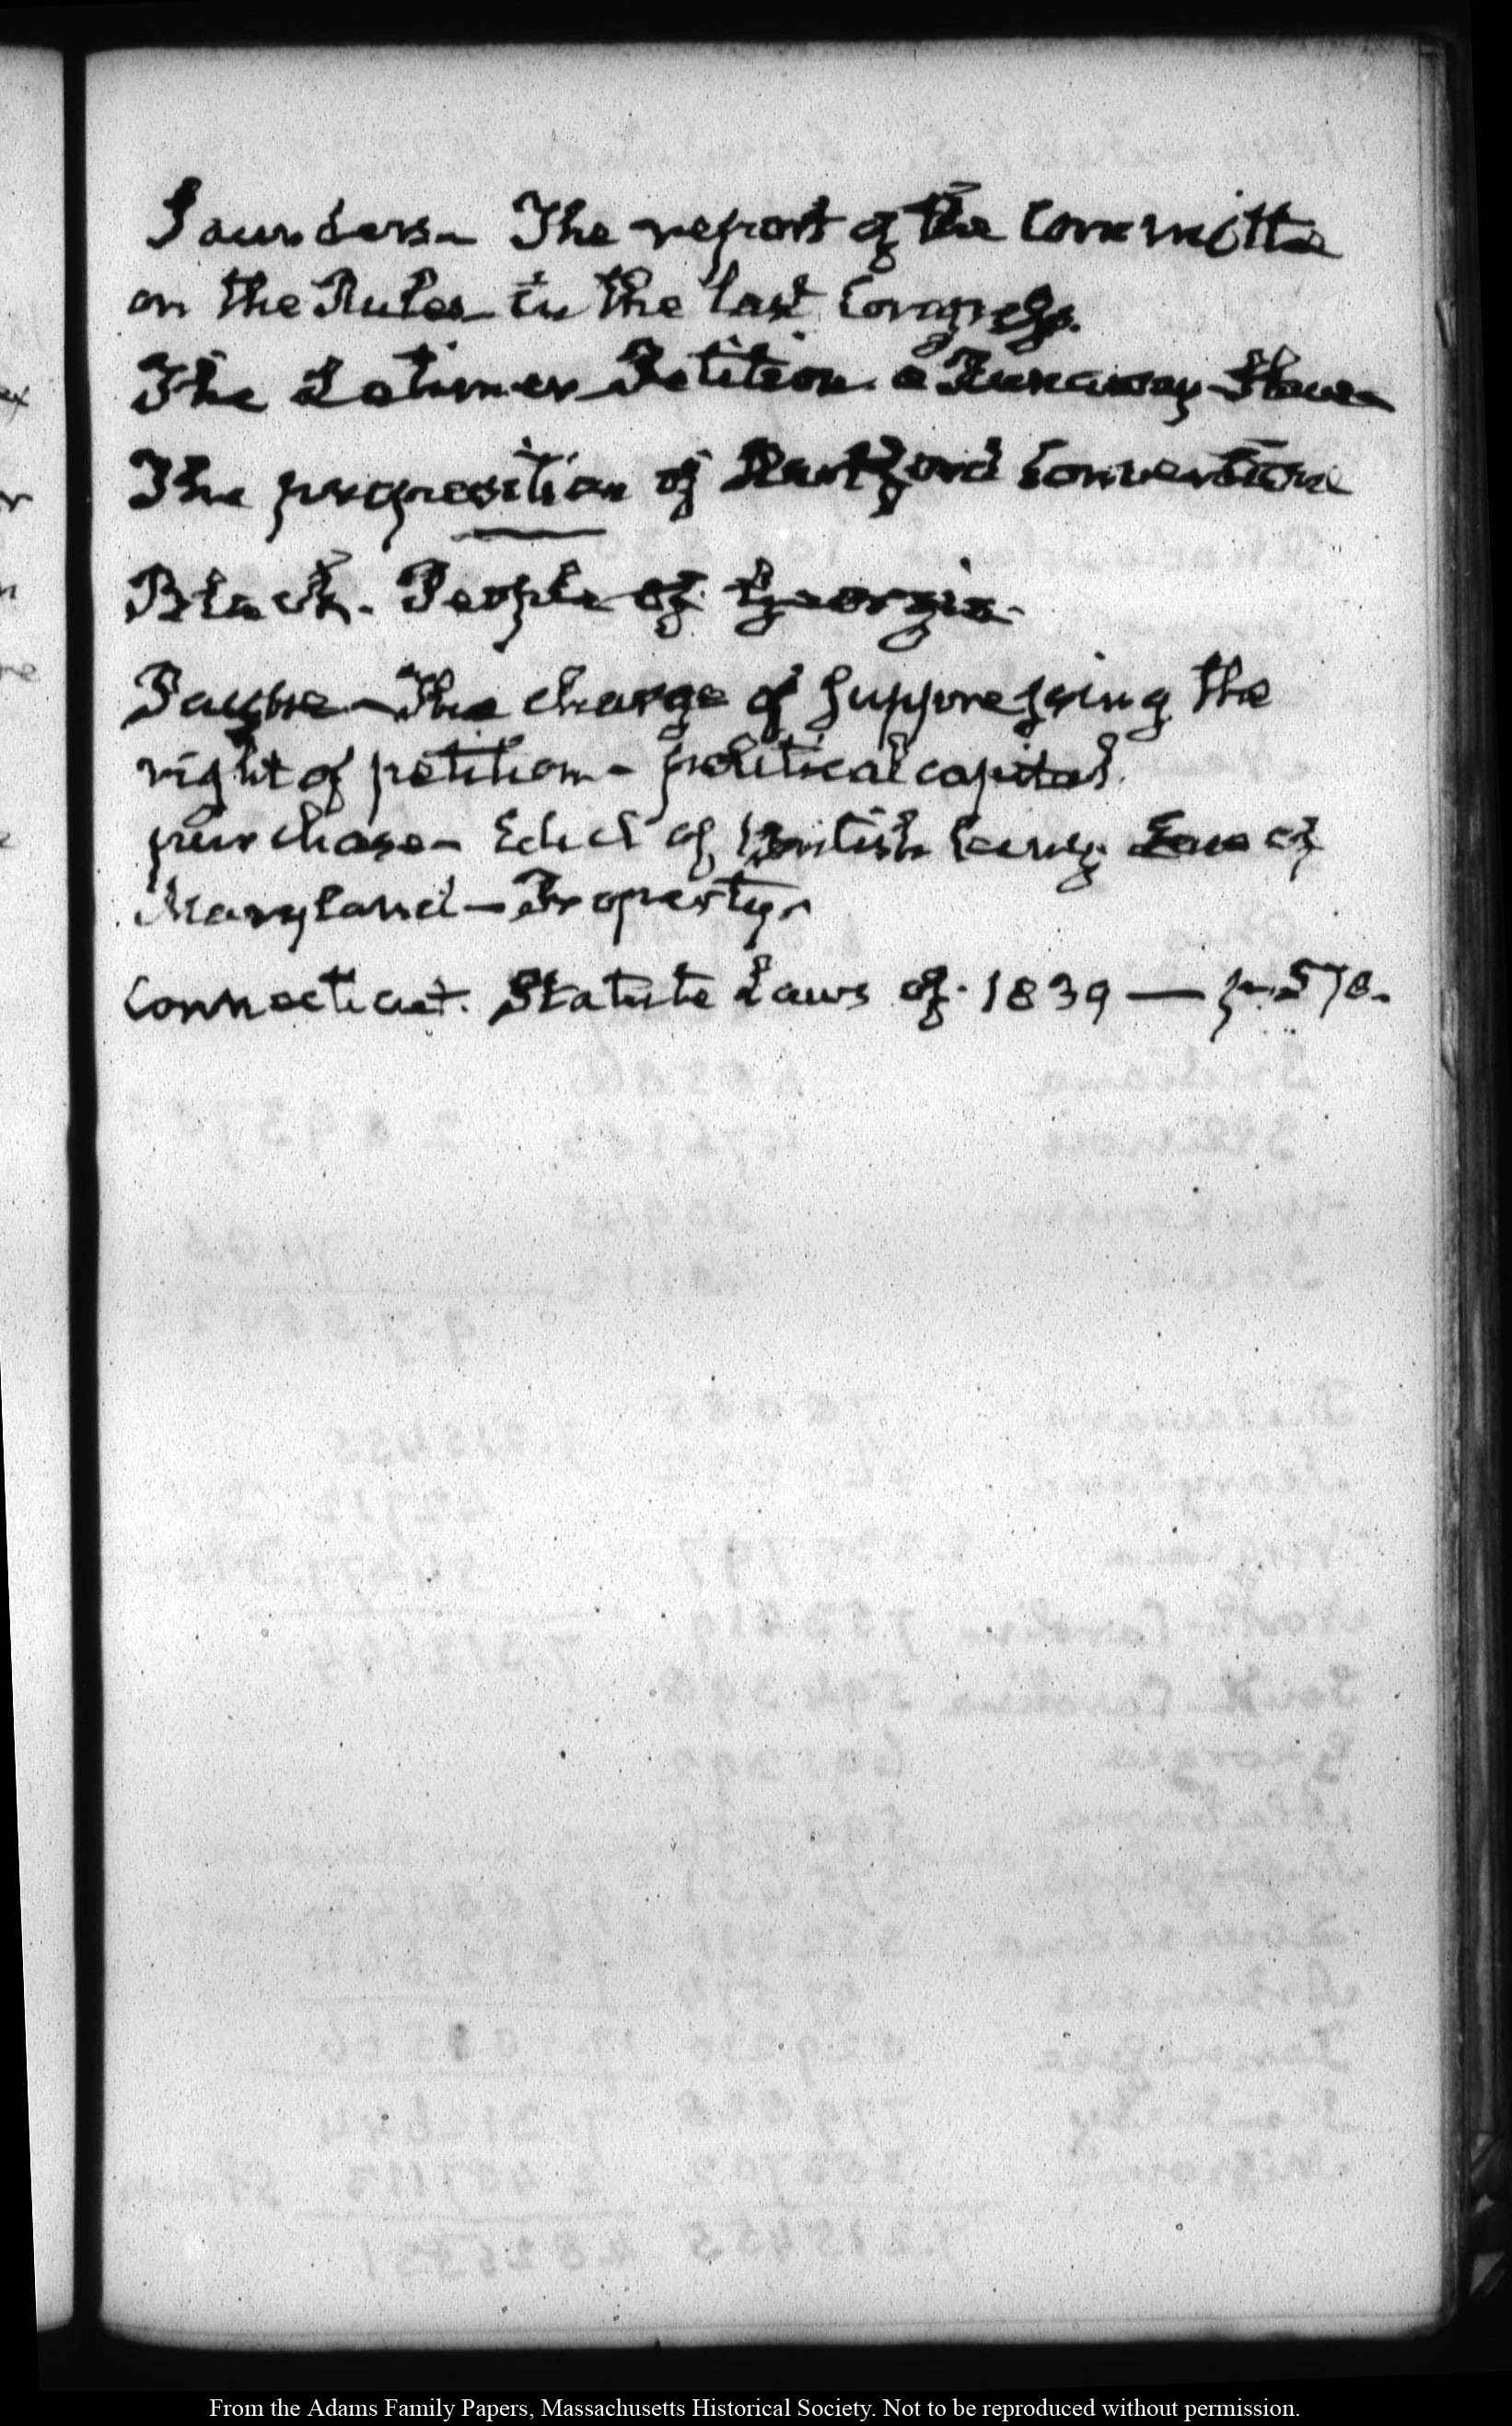 Saunders – The report of the Committee
on the Rules in the last Congress.
The Latimer Petition. a Runaway Slave
The proposition of Hartford Convention
Black. People of Georgia.
Payne – The charge of suppressing the
right of petition – political capital.
purchase – Edict of British King. Law of
Maryland – Property.
Connecticut. Statute Laws of. 1839 — p. 570.
From the Adams Family Papers, Massachusetts Historical Society. Not to be reproduced without permission.